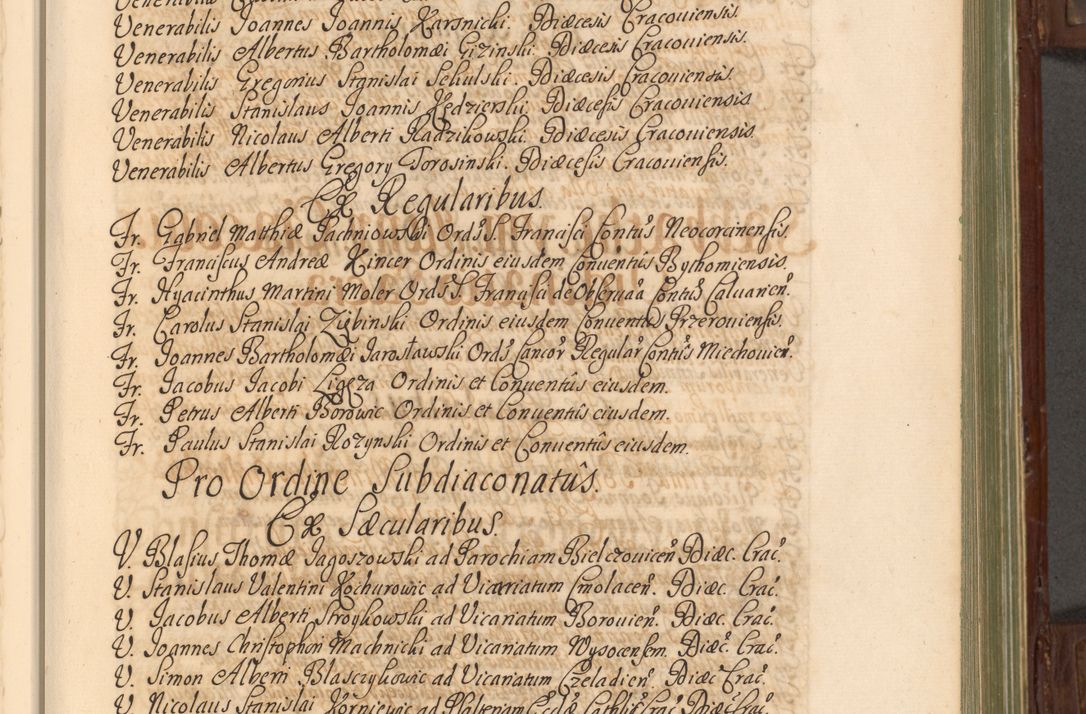 Venerabilis Joannes Joannis Karsnicki. Diæcesis Cracouiensis.
Venerabilis Albertus Bartholomæi Gizinski. Diæcesis Cracouiensis.
Venerabilis Gregorius Stanislai Sekulski. Diæcesis Cracouiensis.
Venerabilis Stanislaus Joannis Kędzierski. Diæcesis Cracouiensis
Venerabilis Nicolaus Alberti Radzikowski. Diæcesis Cracouiensis.
Venerabilis Albertus Gregory Torosinski. Diæcesis Cracouiensis.
Ex Regularibus.
Fr. Gabriel Matthiæ Pachniowski Ord: S. Francisci Contus Neocorcinensis.
Fr. Franciscus Andreæ Kincer Ordinis eiusdem Conuentus Bythomiensis.
Fr. Hyacinthus Martini Moler Ord: S. Francisci de Obserua Contus Caluarien.
Fr. Carolus Stanislai Ziębinski Ordinis eiusdem Conuentus Przerouiensis.
Fr. Joannes Bartholomæi Jarosławski Ord: Cancor Regular Contus Miechouien.
Fr. Jacobus Jacobi Ligęza Ordinis et Conuentûs eiusdem.
Fr. Petrus Alberti Borowic Ordinis et Conuentûs eiusdem.
Fr. Paulus Stanislai Rozynski Ordinis et Conuentûs eiusdem.
Pro Ordine Subdiaconatûs.
Ex Sæcularibus.
V. Blasius Thomæ Jagoszowski ad Parochiam Bielczouicen Diæc. Crac.
V. Stanislaus Valentini Kochurowic ad Vicariatum Cmolacen. Diæc. Crac.
V. Jacobus Alberti Stroykowski ad Vicariatum Borouien. Diæc. Crac.
V. Joannes Christophori Machnicki ad Vicariatum Wysocensem. Diæc. Crac.
V. Simon Alberti Blasczykowic ad Vicariatum Czeladien. Diæc Crac.
V. Nicolaus Stanislai Korniewic ad Psalteriam Eccl. Cathlis Crac Diæc Crac.